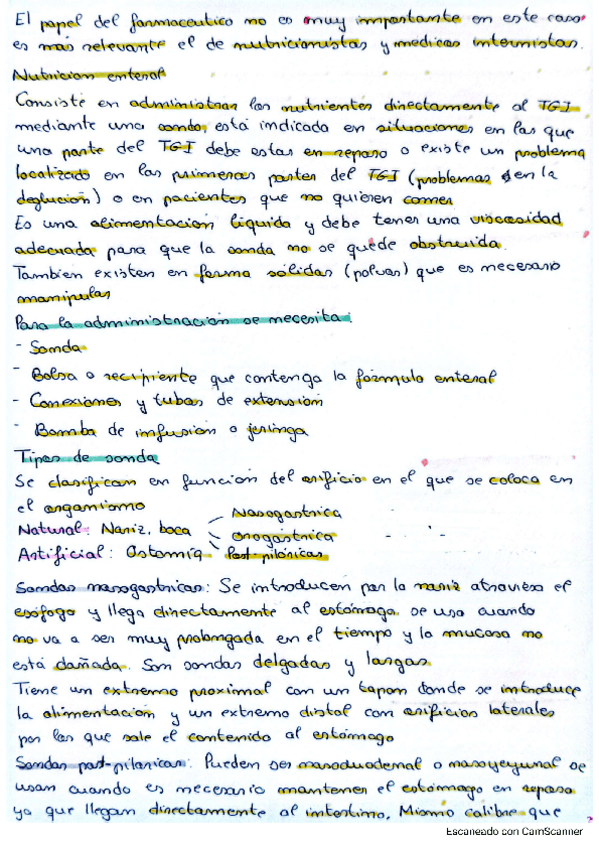 El papel del farmaceutico no es muy importante en este caso
es mas relevante el de nutricionistas y medicos internistas.
Nutricion enteral
Consiste en administrar los nutrientes directamente al TGI
mediante una sonda, está indicada en situaciones en las que
una parte del TGI debe estar en reposo o existe un problema
localizado en las primeras partes del TGI (problemas en la
deglución) o en pacientes que no quieren comer
Es una alimentación líquida y debe tener una viscosidad
adecuada para que la sonda no se quede obstruida.
Tambien existen en forma sólidas (polvos) que es necesario
manipular
Para la administración se necesita:
- Sonda
- Bolsa o recipiente que contenga la fórmula enteral
- Conexiones y tubos de extensión
- Bomba de infusión o jeringa
Tipos de sonda
Se clasifican en función del orificio en el que se coloca en
el organismo
Nasogastrica
Natural: Nariz, boca orogastrica
Artificial: Ostomía Post-pilóricas
Sondas nasogastricas: Se introducen por la nariz atraviesa el
esófogo y llega directamente al estómago. se usa cuando
no va a ser muy prolongada en el tiempo y la mucosa no
está dañada. Son sondas delgadas y largas.
Tiene un extremo proximal con un tapon donde se introduce
la alimentación y un extremo distal con orificios laterales
por los que sale el contenido al estómago
Sondas post-piloricas: Pueden ser nasoduodenal o nasoyeyunal se
usan cuando es necesario mantener el estómago en reposo
ya que llegan directamente al intestino. Mismo calibre que
Escaneado con CamScanner